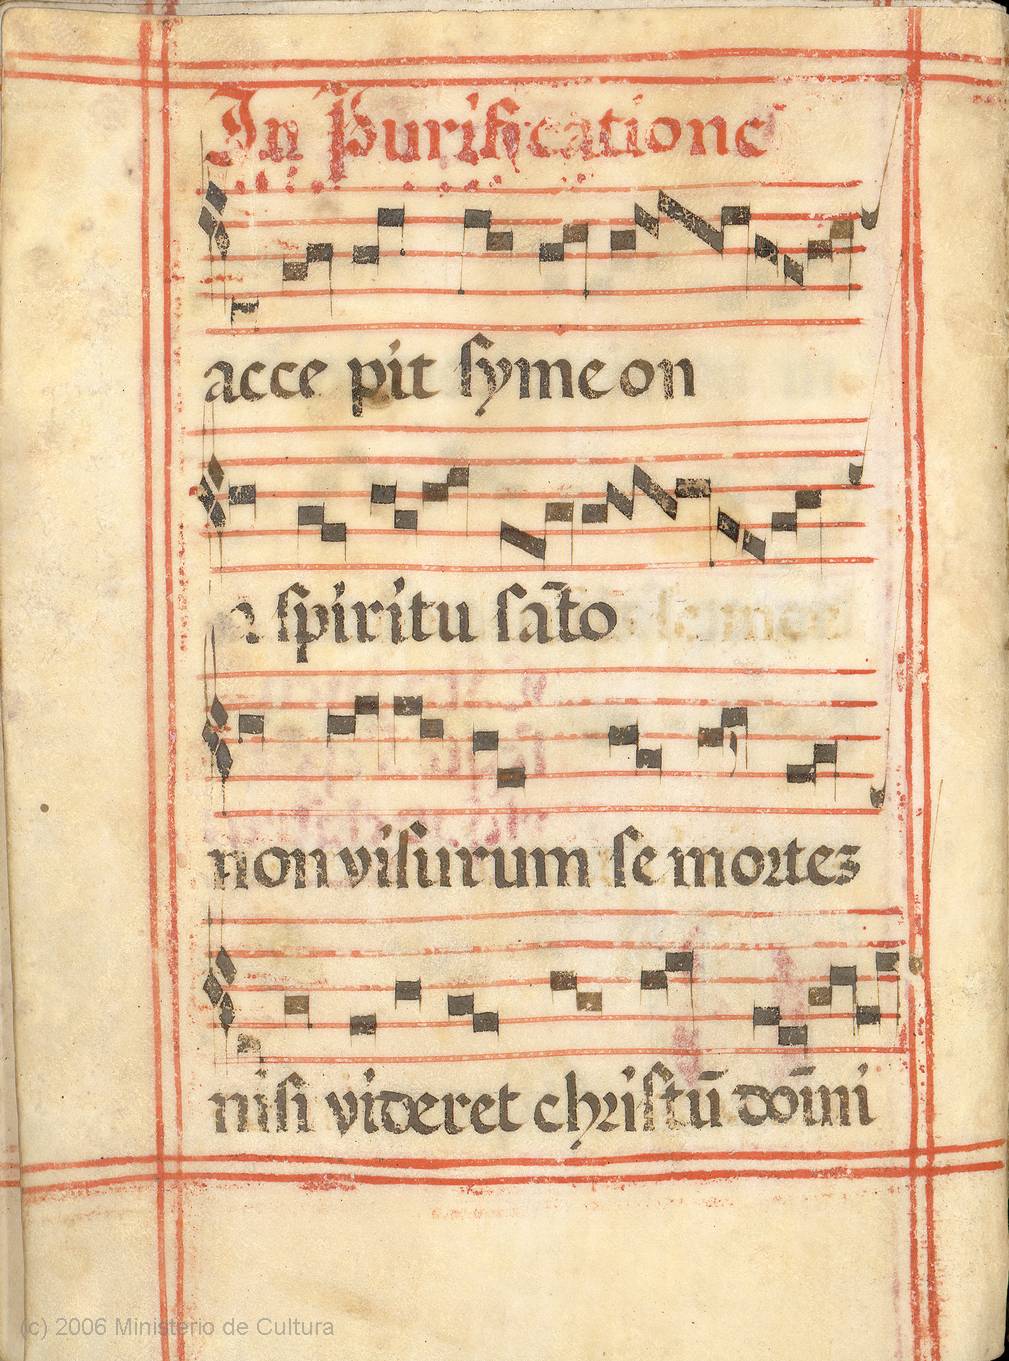 In Purificatione
acce pit symeon
a spiritu sãto
non visurum se mortez
nisi videret christũ domĩni
(c) 2006 Ministerio de Cultura